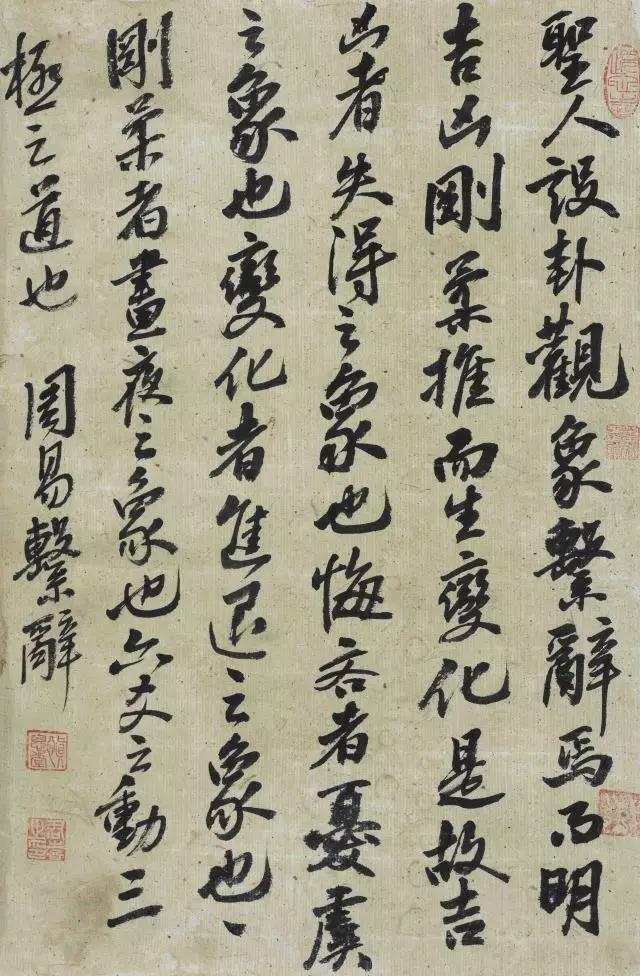 聖人設卦觀象繫辭焉而明
吉凶剛柔推而生變化是故吉
凶者失得之象也悔吝者憂虞
之象也變化者進退之象也、
剛柔者晝夜之象也六爻之動三
極之道也 周易繫辭